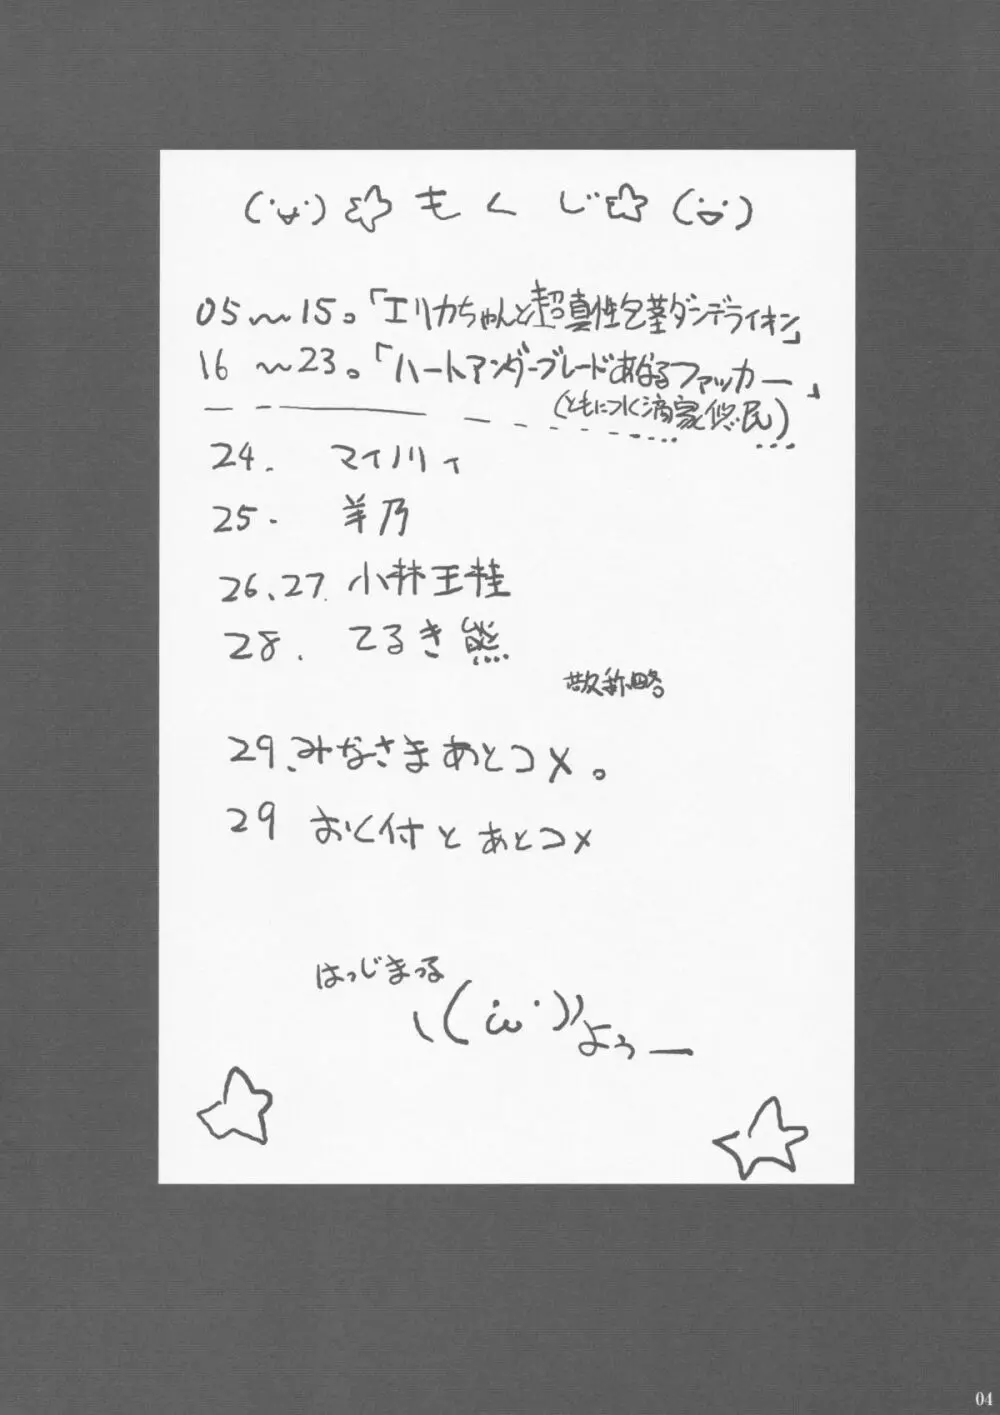 ('ᴗ')☆もくじ☆('ᴗ')
05〜15。「エリカちゃんと超真性包茎ダンデライオン」
16〜23。「ハートアンダーブレードあなるファッカー」
(ともに
24. マイノリィ
25. 羊乃
26、27. 小林王桂
28. てるき熊
敬称略
29、みなさまあとコメ。
29 おく付とあとコメ
はっじまっる
('ω')
よぅー
04